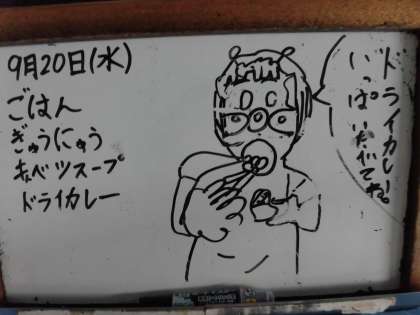 9月20日(水)
ごはん
ぎゅうにゅう
キャベツスープ
ドライカレー
ドライカレー。
いっぱいたべてね。